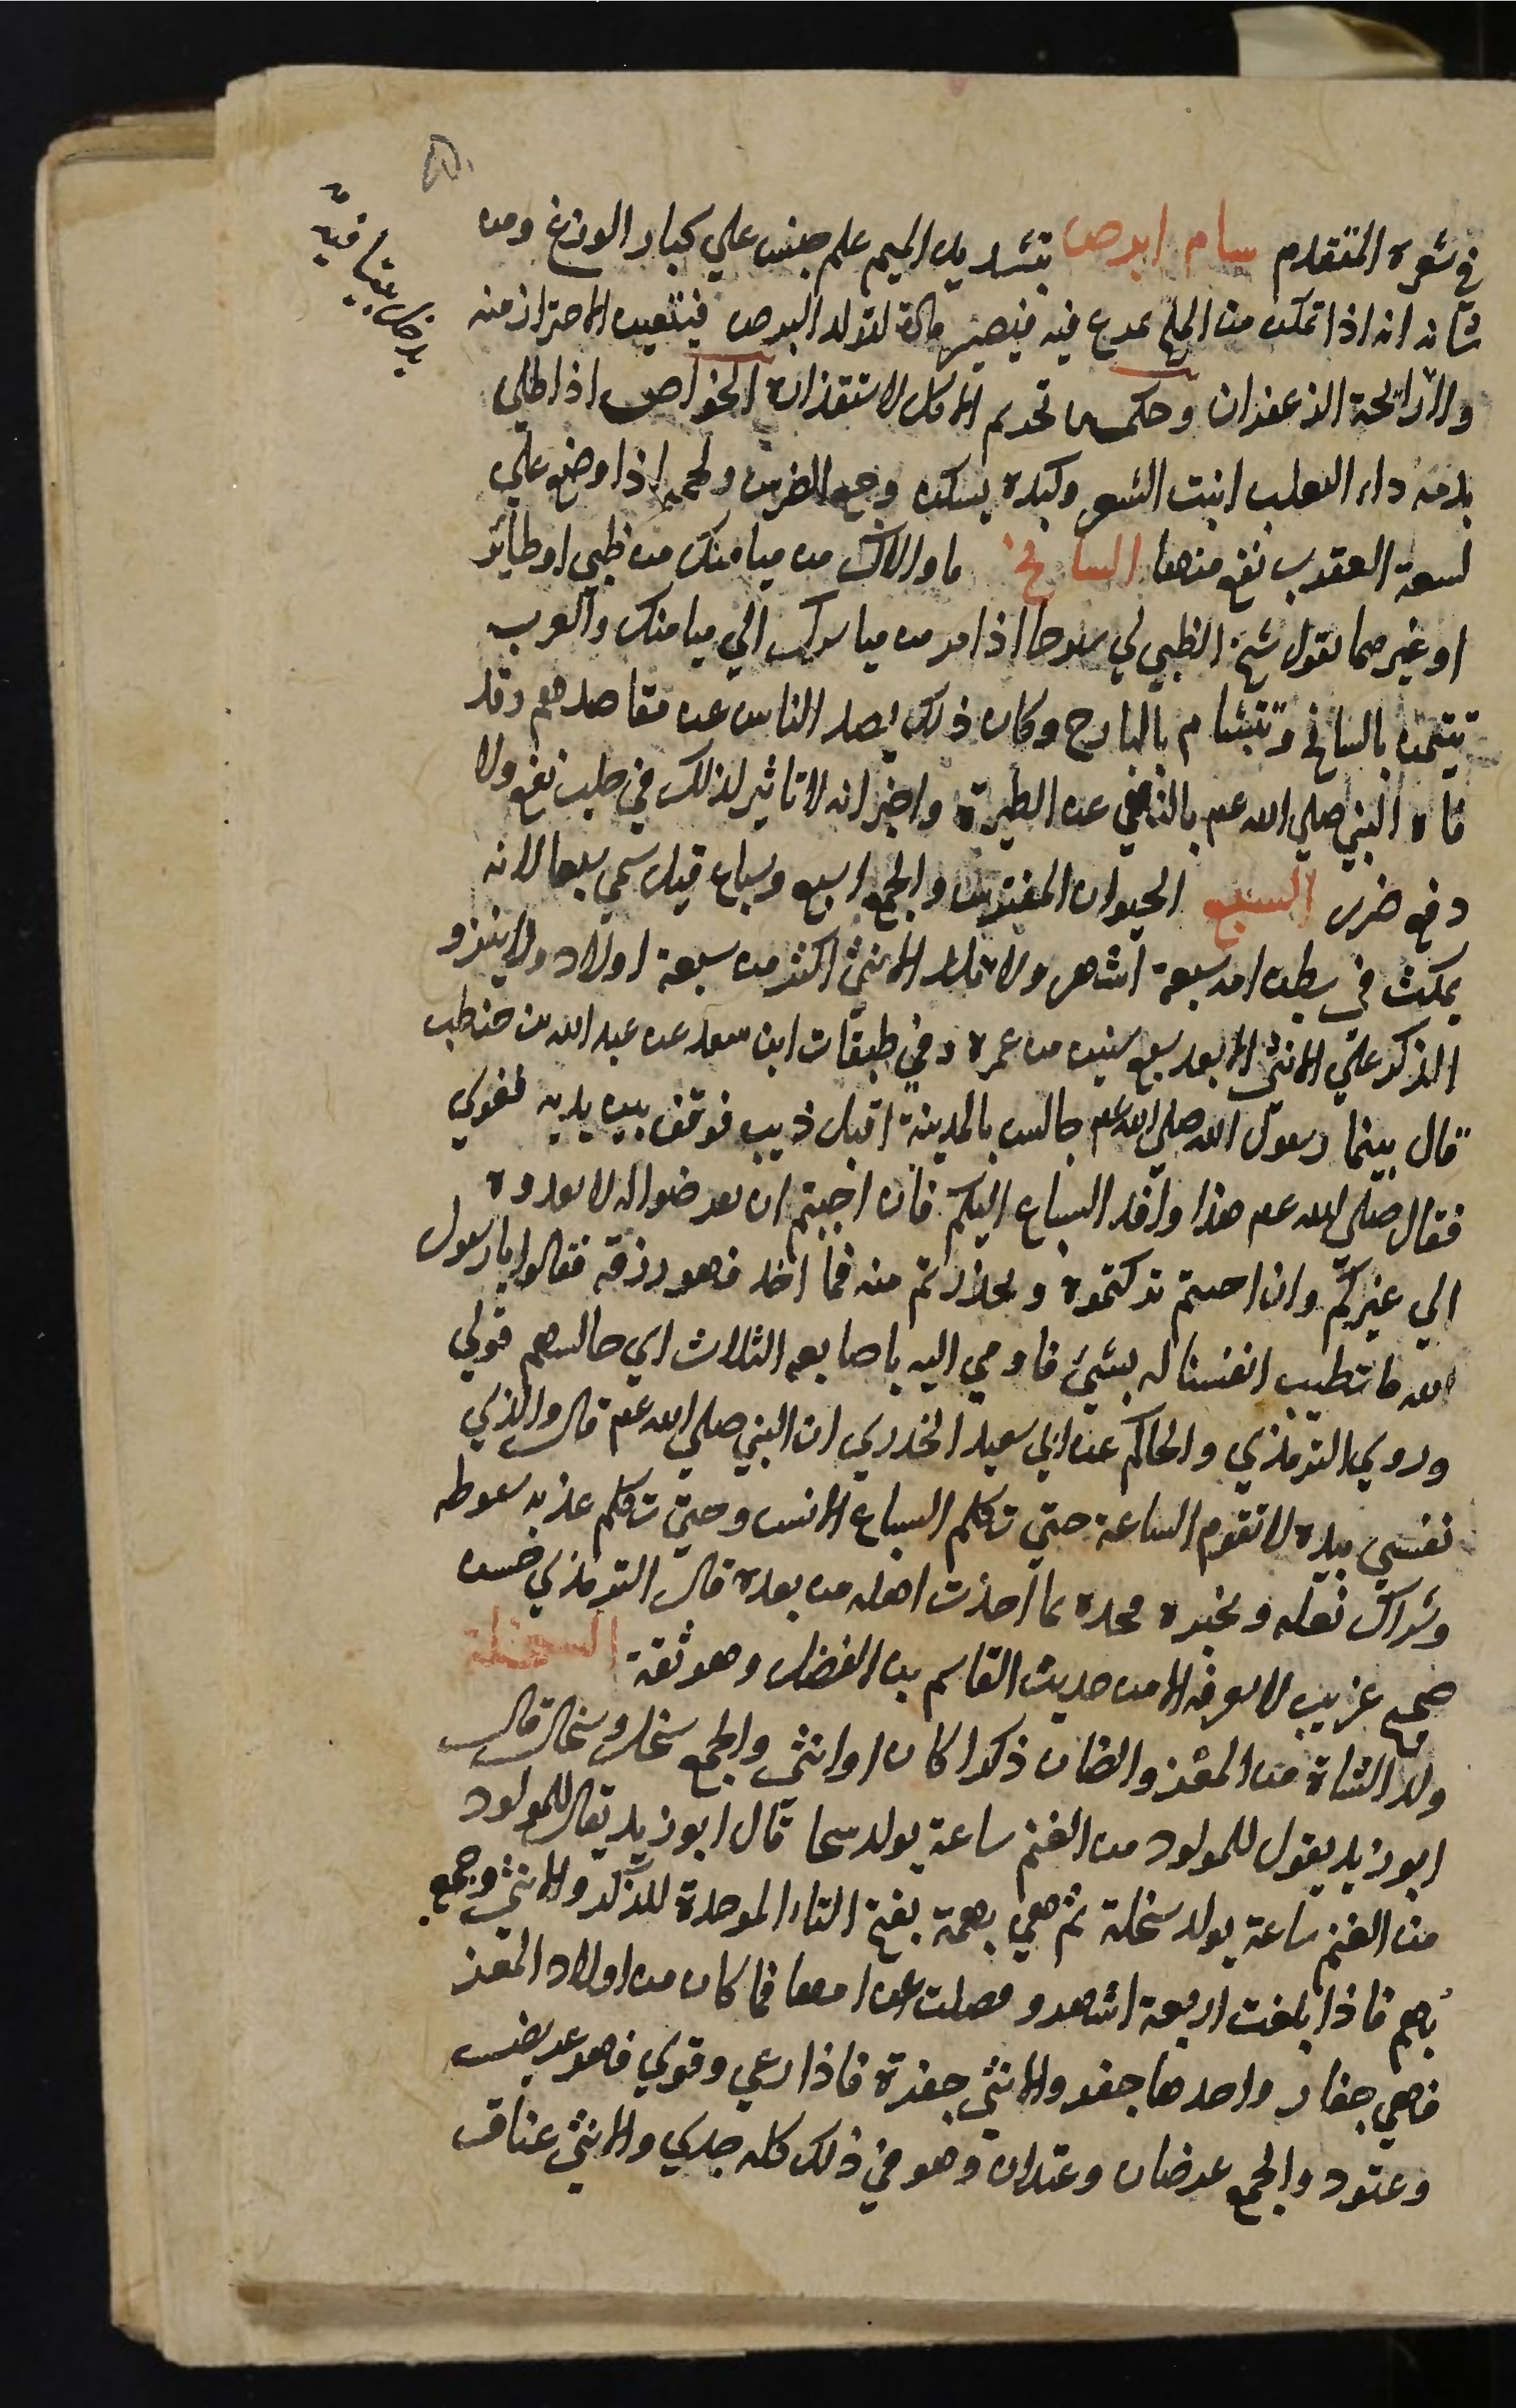 في شعره المتقدم سام ابرص بتشديد الميم علم جنس علي كبار الوزغ ومن
شانه انه اذا تمكن من الملح تمرغ فيه فيصير مادة لتولد البرص فيتعين الاحتراز منه
والا رايحة الزعفران وحكمه تحريم الاكل لاستقذاره الخواص اذا طلي
بدمه داء الثعلب انبت الشعر وكبده يسكن وجع الضرس ولحمه اذا وضع علي
لسعة العقرب نفع منها السانح ما والاك من ميامنك من ظبي او طائر
او غيرهما تقول سنح الظبي لي سنوحا اذا مر من مياسرك الي ميامنك والعرب
تتيمن بالسانح وتتشام بالبارح وكان ذلك يصد الناس عن مقاصدهم وقد
فاه النبي صلي الله عم بالنهي عن الطيرة واخبر انه لا تاثير لذلك في جلب نفع ولا
دفع ضرر السبع الحيوان المفترس والجمع اسبع وسباع قيل سمي سبعا لانه
يمكث في بطن امه سبعة اشهر ولا تلد الانثي اكثر من سبعة اولاد ولا ينزو
الذكر علي الانثي الا بعد سبع سنين من عمره وفي طبقات ابن سعد عن عبد الله بن حنطب
قال بينما رسول الله صلي الله عم جالس بالمدينة اقبل ذيب فوقف بين يديه فعوي
فقال صلي الله عم هذا وافد السباع اليكم فان احببتم ان تعرضوا له لا يعدوه
الي غيركم وان احببتم تركتموه وتحذرتم منه فما اخذ فهو رزقه فقالوا يا رسول
الله ما تطيب انفسنا له بشيئ فاومي اليه باصابعه الثلاث اي خالسهم فولي
وروي الترمذي والحاكم عن ابي سعيد الخدري ان النبي صلي الله عم قال والذي
نفسي بيده لا تقوم الساعة حتي تكلم السباع الانس وحتي تكلم عذبه سوطه
وشراك نعله وتخبره فخذه بما احدث اهله من بعده قال الترمذي حسن
صحيح غريب لا نعرفه الا من حديث القاسم بن الفضل وهو ثقة السخلة
ولد الشاة من المعز والضان ذكرا كان او انثي والجمع سخل وسخال قال
ابو زيد يقول للمولود من الغنم ساعة يولد سخلا قال ابو زيد يقال للمولود
من الغنم ساعة يولد سخلة ثم هي بهمة بفتح الباء الموحدة للذكر والانثي وجمع
بُهم فاذا بلغت اربعة اشهر وفصلت عن امها فما كان من اولاد المعز
فهي جفار واحدها جفر والانثي جفرة فاذا رعي وقوي فهو عريض
وعتود والجمع عرضان وعتدان وهو في ذلك كله جدي والانثي عناق